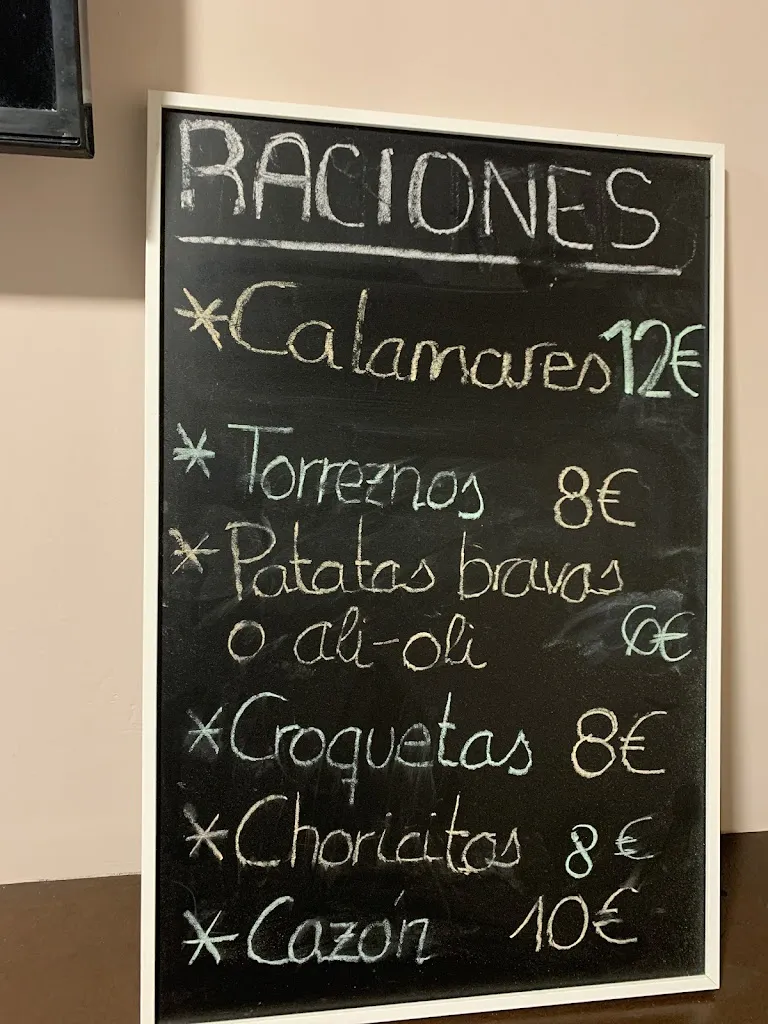 RACIONES
*Calamares 12€
* Torreznos 8€
* Patatas bravas
o ali-oli 6€
*Croquetas 8€
*Choricitos 8€
*Cazón 10€